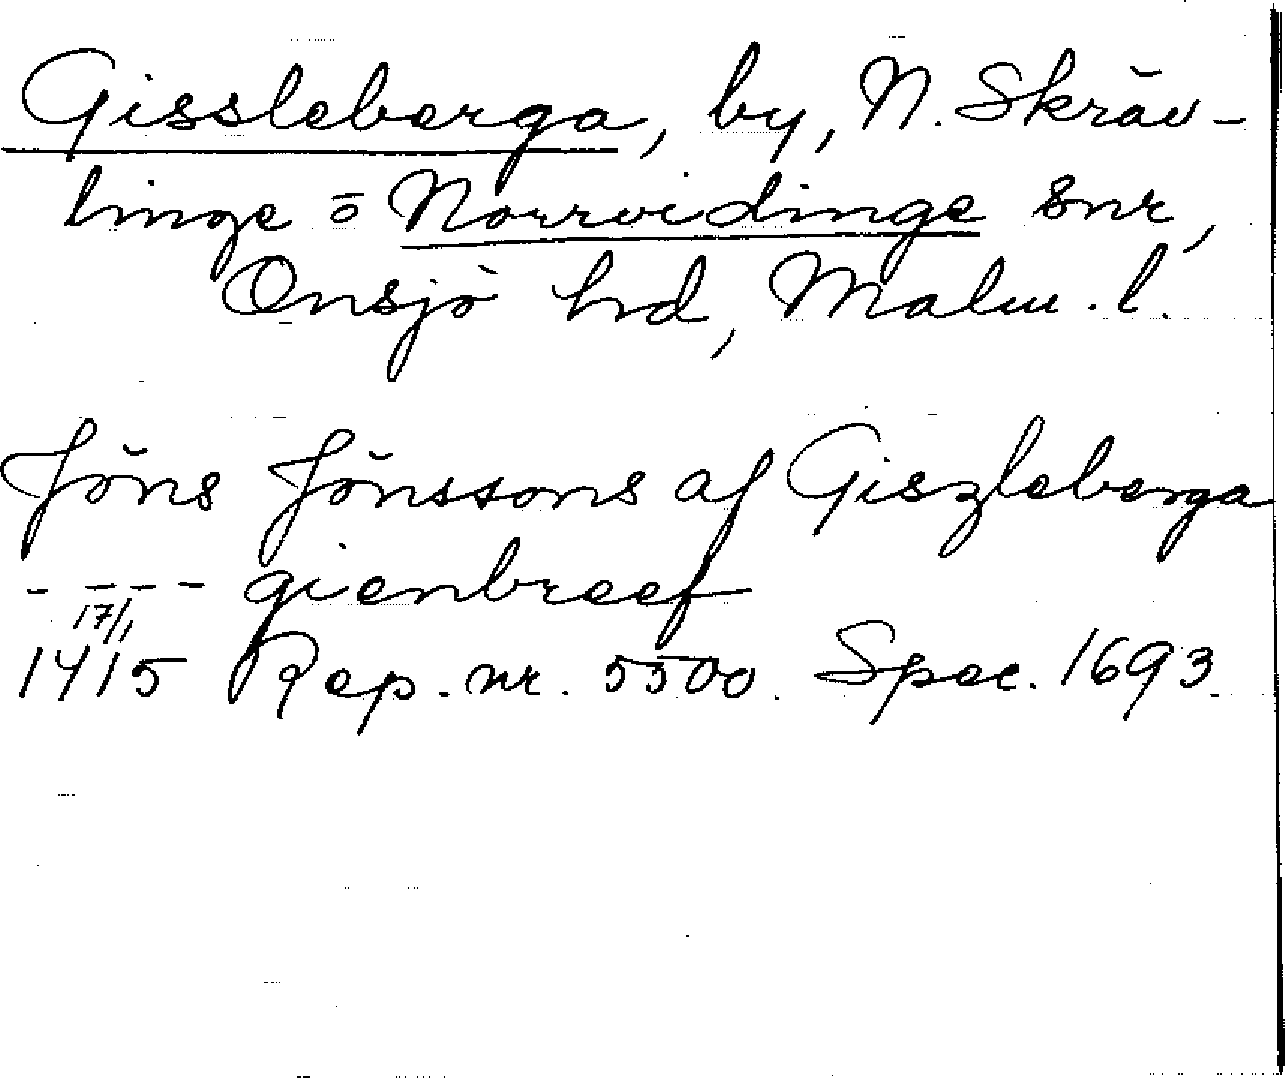 Gissleberga, by, N. Skräv-
linge o Norrvidinge snr,
Onsjö hd, Malm. l.
Jöns Jönssons af Giszleberga
- - - - gienbreef
17/1
1415 Rep. nr. 5500. Spec. 1693.